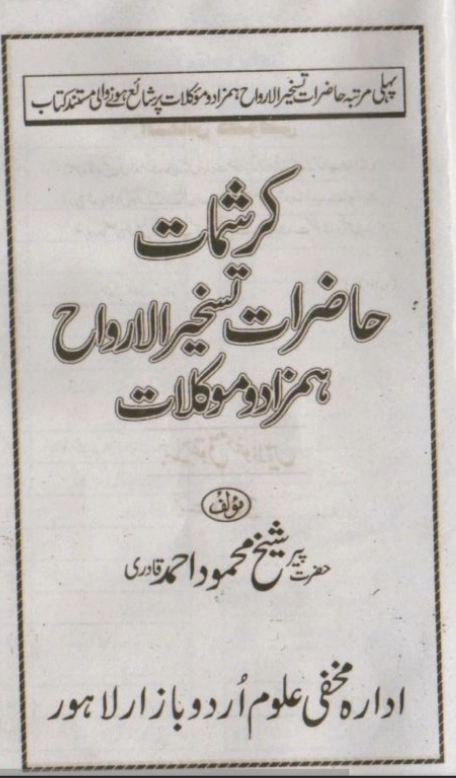 پہلی مرتبہ حاضرات تسخیر الارواح ہمزاد و موکلات پر شائع ہونے والی مستند کتاب
کرشمات
حاضرات تسخیر الارواح
ہمزاد و موکلات
مؤلف
حضرت پیر شیخ محمود احمد قادری
ادارہ مخفی علوم اُردو بازار لاہور